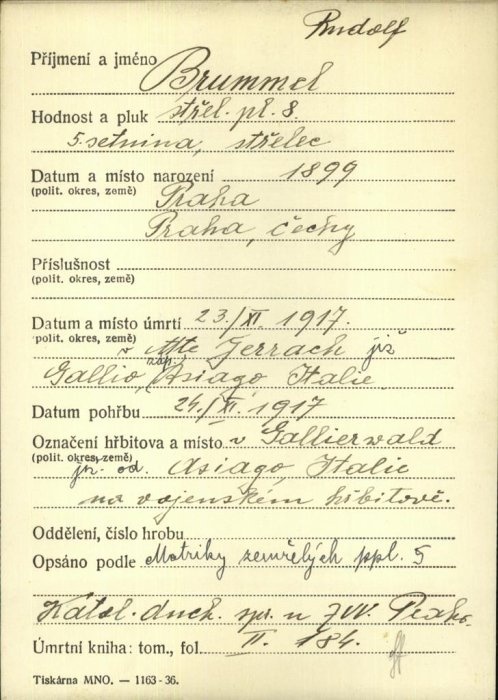 Rudolf
Příjmení a jméno Brummel
Hodnost a pluk střel. pl. 8.
5. setnina, střelec
Datum a místo narození 1899
(polit. okres, země) Praha
Praha, čechy
Příslušnost
(polit. okres, země)
Datum a místo úmrtí 23./XI. 1917.
(polit. okres, země) v Mte Zerrach již
Gallio, záp. Asiago, Italie
Datum pohřbu 24./XI. 1917
Označení hřbitova a místo v Gallierwald
(polit. okres, země) již. od. Asiago, Italie
na vojenském hřbitově.
Oddělení, číslo hrobu
Opsáno podle Matriky zemřelých ppl. 5
Katol. duch. spr. u ZVV. Praha.
Úmrtní kniha: tom., fol. II. 184.
Tiskárna MNO. — 1163-36.